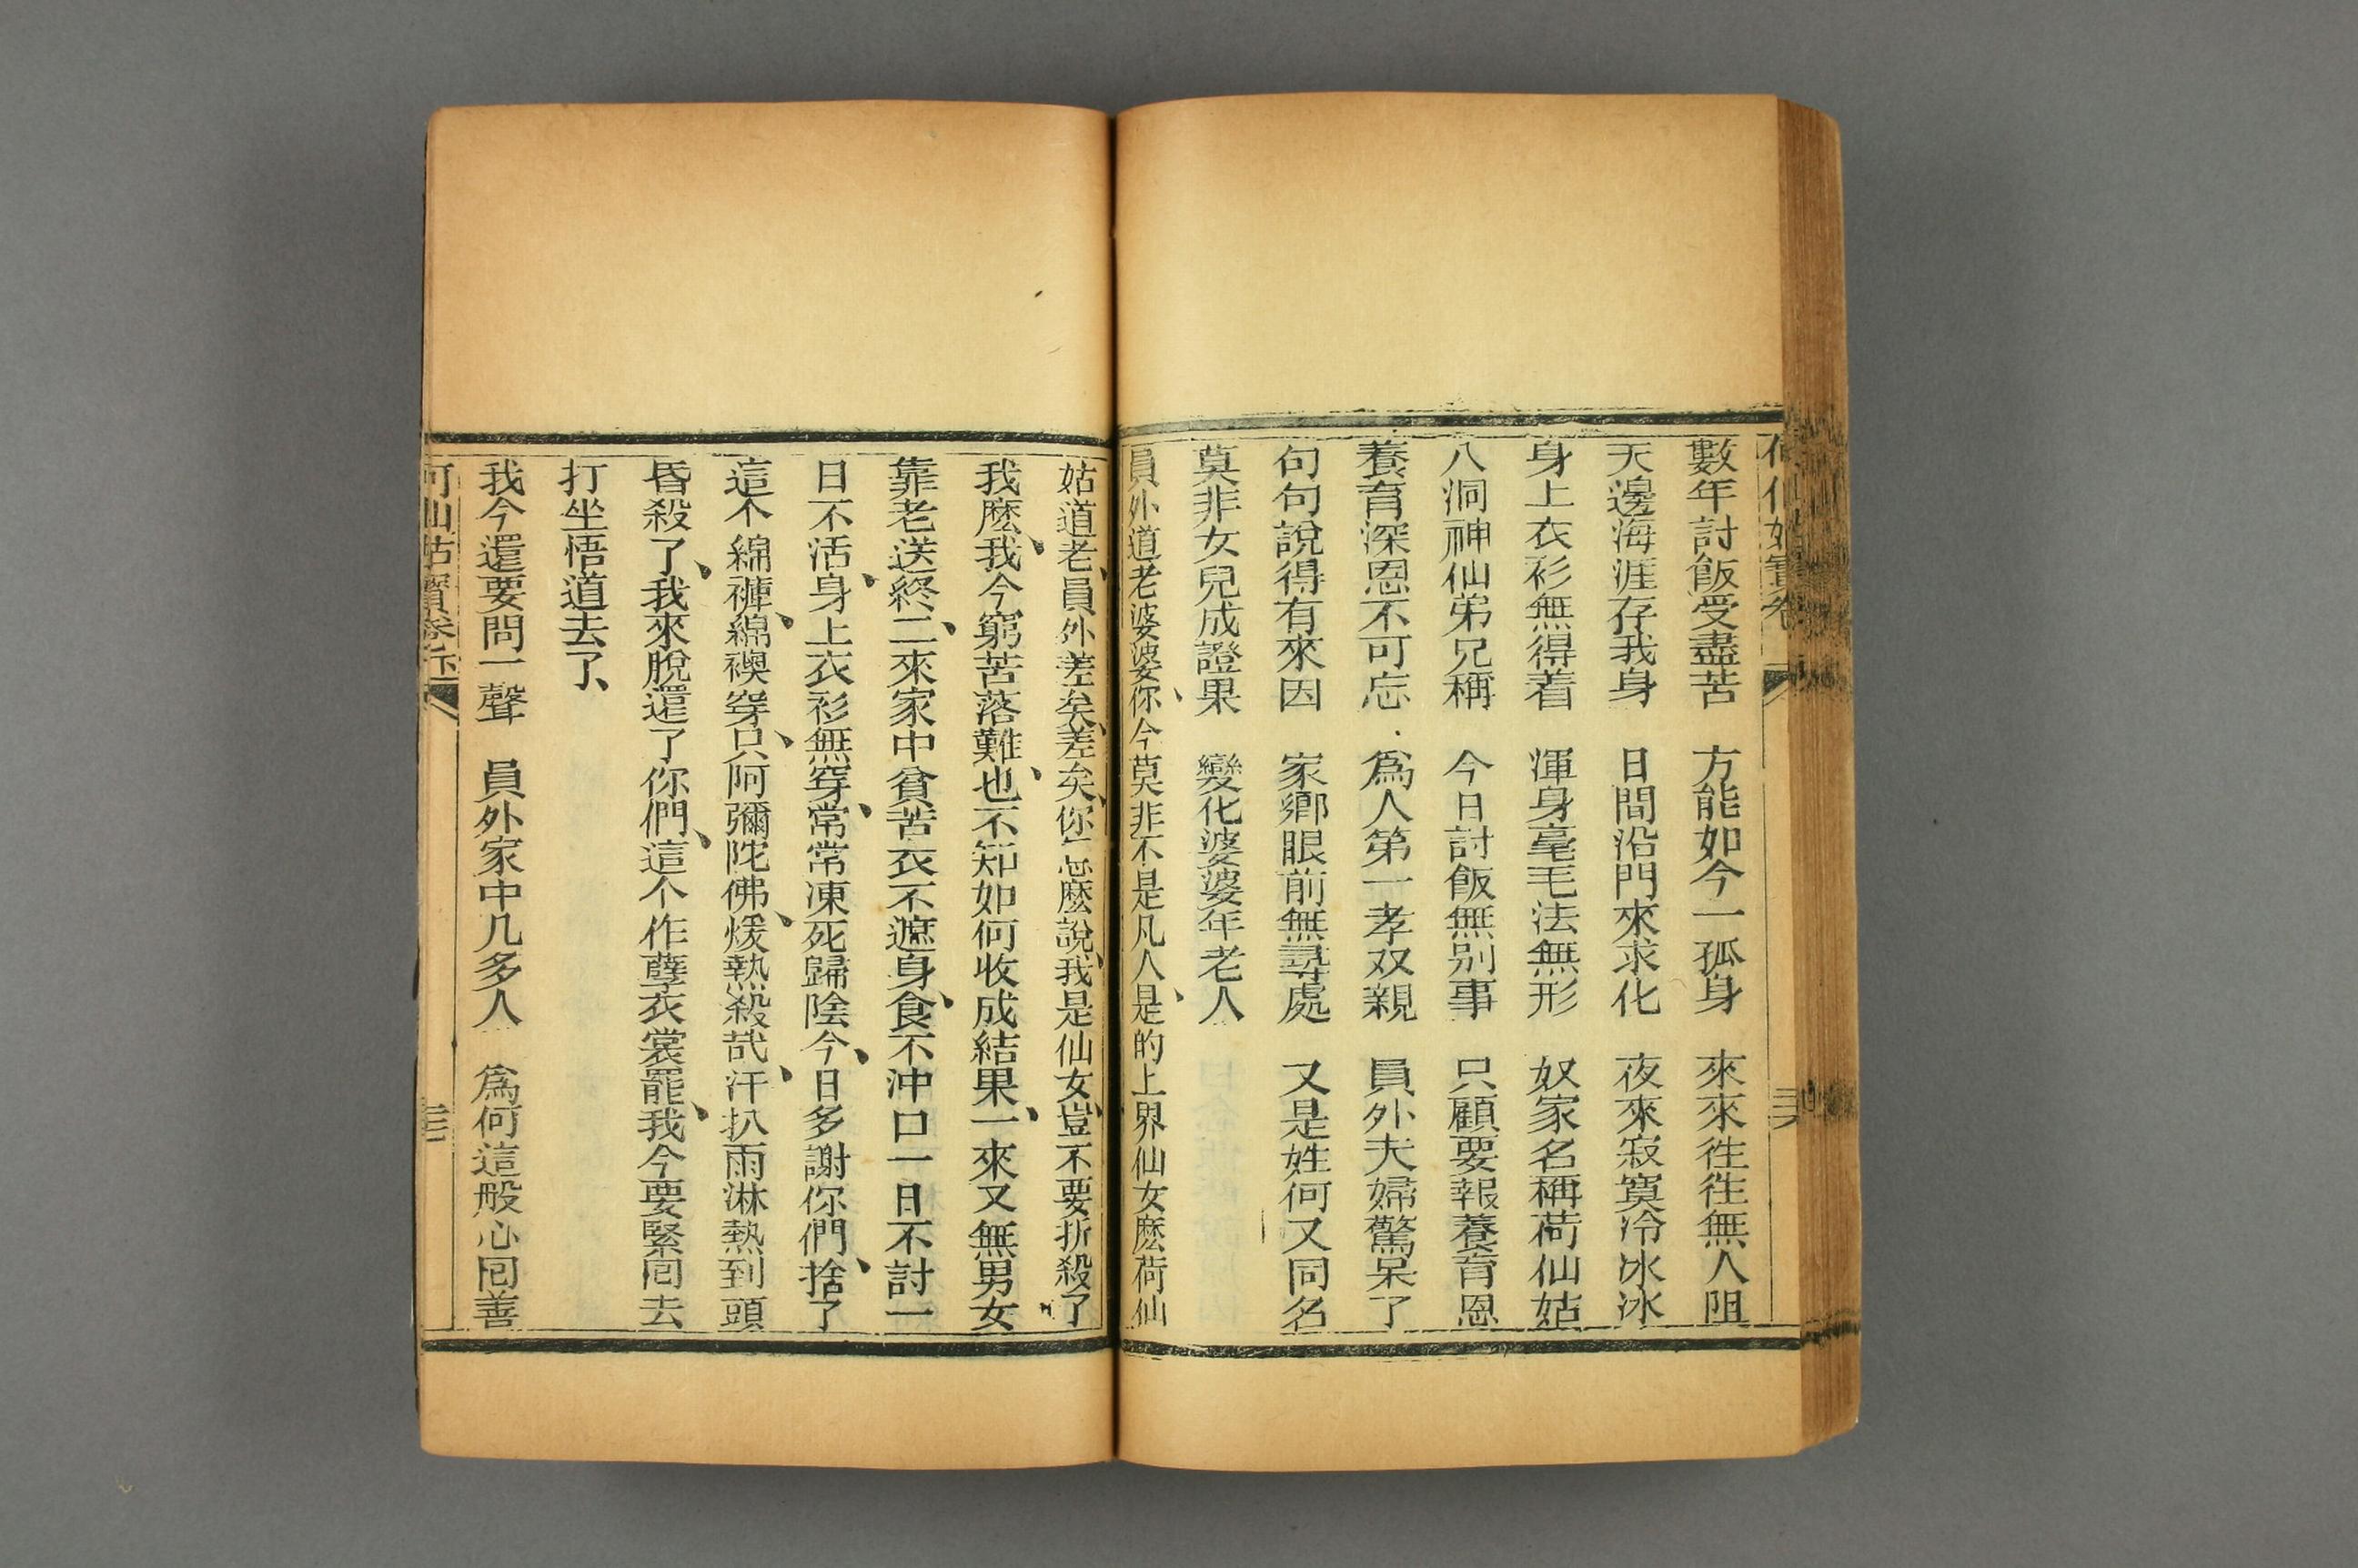 數年討飯受盡苦 方能如今一孤身 來來徃徃無人阻
天邊海涯存我身 日間沿門來求化 夜來寂寞冷冰冰
身上衣衫無得着 渾身毫毛法無形 奴家名稱荷仙姑
八洞神仙弟兄稱 今日討飯無別事 只顧要報養育恩
養育深恩不可忘 爲人第一孝双親 員外夫婦驚呆了
句句說得有來因 家鄉眼前無尋處 又是姓何又同名
莫非女兒成證果 變化婆婆年老人
員外道老婆婆、你今莫非不是凡人、是的上界仙女麽荷仙
姑道老、員外差矣、差矣、你怎麽說、我是仙女、豈不要折殺了
我麽、我今窮苦落難也、不知如何收成結果、一來又無男女
靠老送終、二來家中貧苦衣不遮身、食不沖口一日不討一
日不活、身上衣衫無穿、常常凍死歸陰、今日多謝你們、捨了
這个綿褲、綿襖穿、只阿彌陀佛、煖熱殺哉、汗扒雨淋熱到頭
昏殺了、我來脫還了你們、這个作孽衣裳罷、我今要緊囘去
打坐悟道去了、
我今還要問一聲 員外家中几多人 爲何這般心囘善
何仙姑寳卷下 三